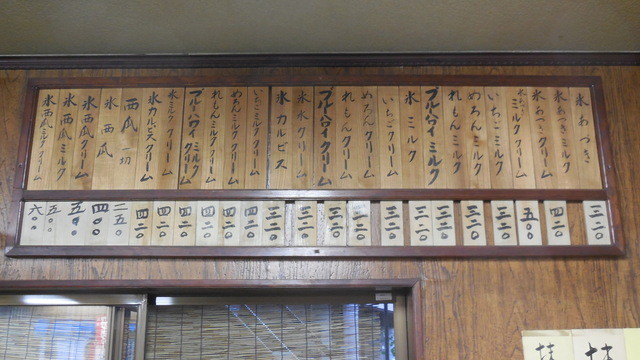 氷あづき
氷あづきミルク
氷あづきクリーム
氷あづきミルククリーム
いちごミルク
めろんミルク
れもんミルク
ブルーハワイミルク
氷ミルク
いちごクリーム
めろんクリーム
れもんクリーム
ブルーハワイクリーム
氷水クリーム
氷カルピス
いちごミルククリーム
めろんミルククリーム
れもんミルククリーム
ブルーハワイミルククリーム
氷ミルククリーム
氷カルピスクリーム
西瓜一切
氷西瓜
氷西瓜クリーム
氷西瓜ミルク
氷西瓜ミルククリーム
三二〇
四二〇
五〇〇
三二〇
三二〇
三二〇
三二〇
三二〇
三二〇
三二〇
三二〇
四二〇
四二〇
四二〇
四二〇
四二〇
四二〇
二五〇
四〇〇
五〇〇
五〇〇
六〇〇